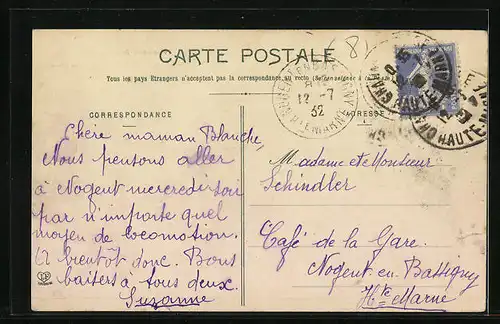 (8)
CARTE POSTALE
Tous les pays Etrangers n'acceptent pas la correspondance au recto (Se renseigner à la
CORRESPONDANCE
ADRESSE
12 -7
32
HAUTE
HAUTE
Chère maman Blanche,
Nous pensons aller
à Nogent mercredi soir
par n'importe quel
moyen de locomotion.
A bientôt donc. Bons
baisers à tous deux.
Suzanne
Madame et Monsieur
Schindler
Café de la Gare.
Nogent en Bassigny
Hte Marne